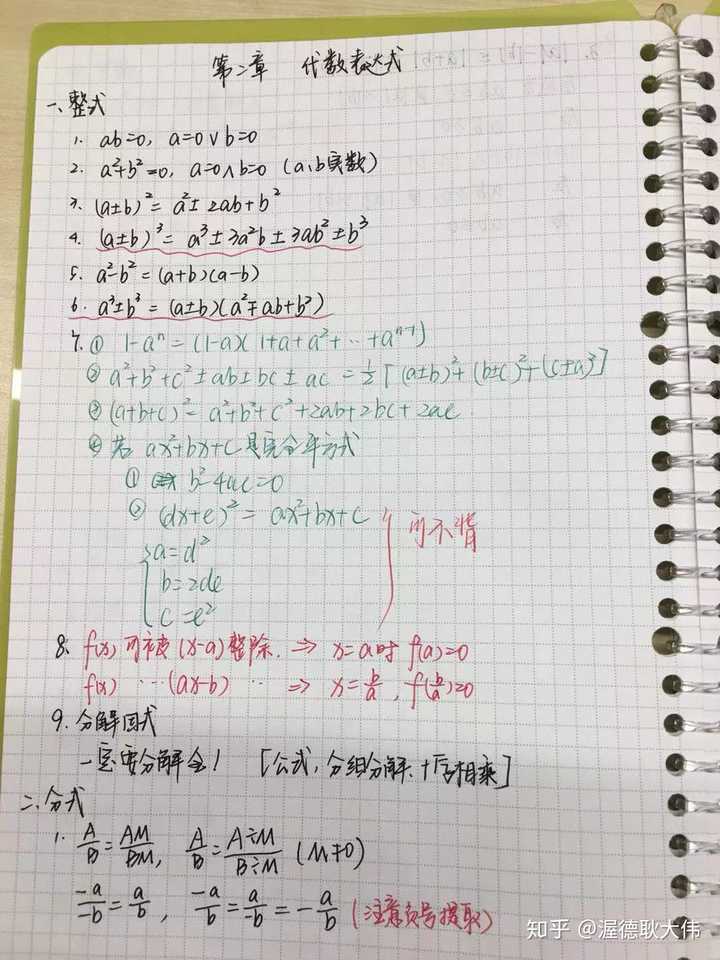 第二章 代数表达式
一、整式
1. ab=0, a=0∨b=0
2. a²+b²=0, a=0∧b=0 (a、b实数)
3. (a±b)²= a²±2ab+b²
4. (a±b)³= a³±3a²b±3ab²±b³
5. a²-b²=(a+b)(a-b)
6. a³±b³=(a±b)(a²∓ab+b²)
7. ① 1-aⁿ=(1-a)(1+a+a²+…+aⁿ⁻¹)
② a²+b²+c²±ab±bc±ac=½[(a±b)²+(b±c)²+(c±a)²]
③ (a+b+c)²=a²+b²+c²+2ab+2bc+2ac
④ 若 ax²+bx+c是完全平方式
① b²-4ac=0
② (dx+e)²=ax²+bx+c
a=d²
b=2de
c=e²
可不背
8. f(x)可被(x-a)整除. ⇒ x=a时 f(a)=0
f(x) …(ax-b) … ⇒ x=b/a, f(b/a)=0
9. 分解因式
一定要分解全! [公式,分组分解.十字相乘]
二、分式
1. A/B=AM/BM, A/B=A÷M/B÷M (M≠0)
-a/-b=a/b, -a/b=a/-b=-a/b (注意负号提取)
知乎 @渥德耿大伟